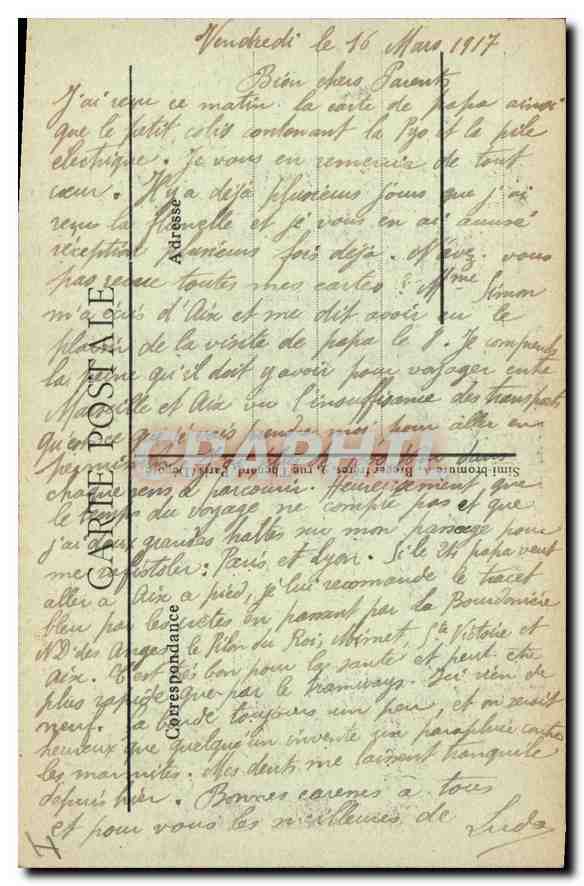 Vendredi le 16 Mars 1917
Bien chers Parents
J'ai reçu ce matin la carte de papa ainsi
que le petit colis contenant la Pyo et la pile
électrique. Je vous en remercie de tout
cœur. Il y a déjà plusieurs jours que j'ai
reçu la flanelle et je vous en ai accusé
réception plusieurs fois déjà. N'avez-vous
pas reçu toutes mes cartes? Mme Simon
m'a écris d'Aix et me dit avoir eu le
plaisir de la visite de papa le 8. Je comprends
la peine qu'il doit y avoir pour voyager entre
Marseille et Aix vu l'insuffisance des transports
qu'est ce que je vais prendre moi pour aller en
permis dans
chaque sens à parcourir. Heureusement que
le temps du voyage ne compte pas et que
j'ai deux grandes haltes sur mon passage pour
me : Paris et Lyon. Si le 24 papa veut
aller à Aix à pied, je lui recomande le tracet
bleu par les crêtes en passant par La Bourdonnière
ND des Anges, le Pilon du Roi, Mimet, Ste Victoire et
Aix. C'est très bon pour la santé et peut être
plus rapide que par le tramways. Ici rien de
neuf. Ça barde toujours un peu, et on serait
heureux que quelqu'un invente un parapluie contre
les marmites. Mes dents me laissent tranquile
depuis hier. Bonnes caresses à tous
et pour vous les meilleures de
Ludo
CARTE POSTALE
Correspondance
Adresse
Simi-bromure A. Breger frères, 9, rue Thénard, Paris
CPAPHIL